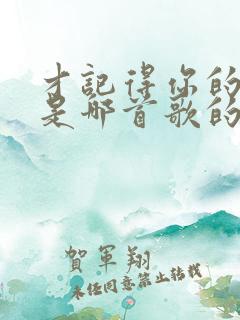 才記得你的
是哪首歌的
賀軍翔
未经同意禁止转载